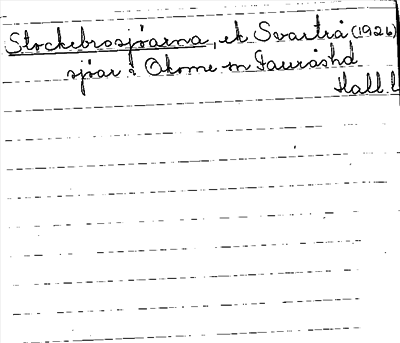 Stockebrosjöarna, ek Svartrå (1926)
sjöar i Okome sn Faurås hd
Hall. l